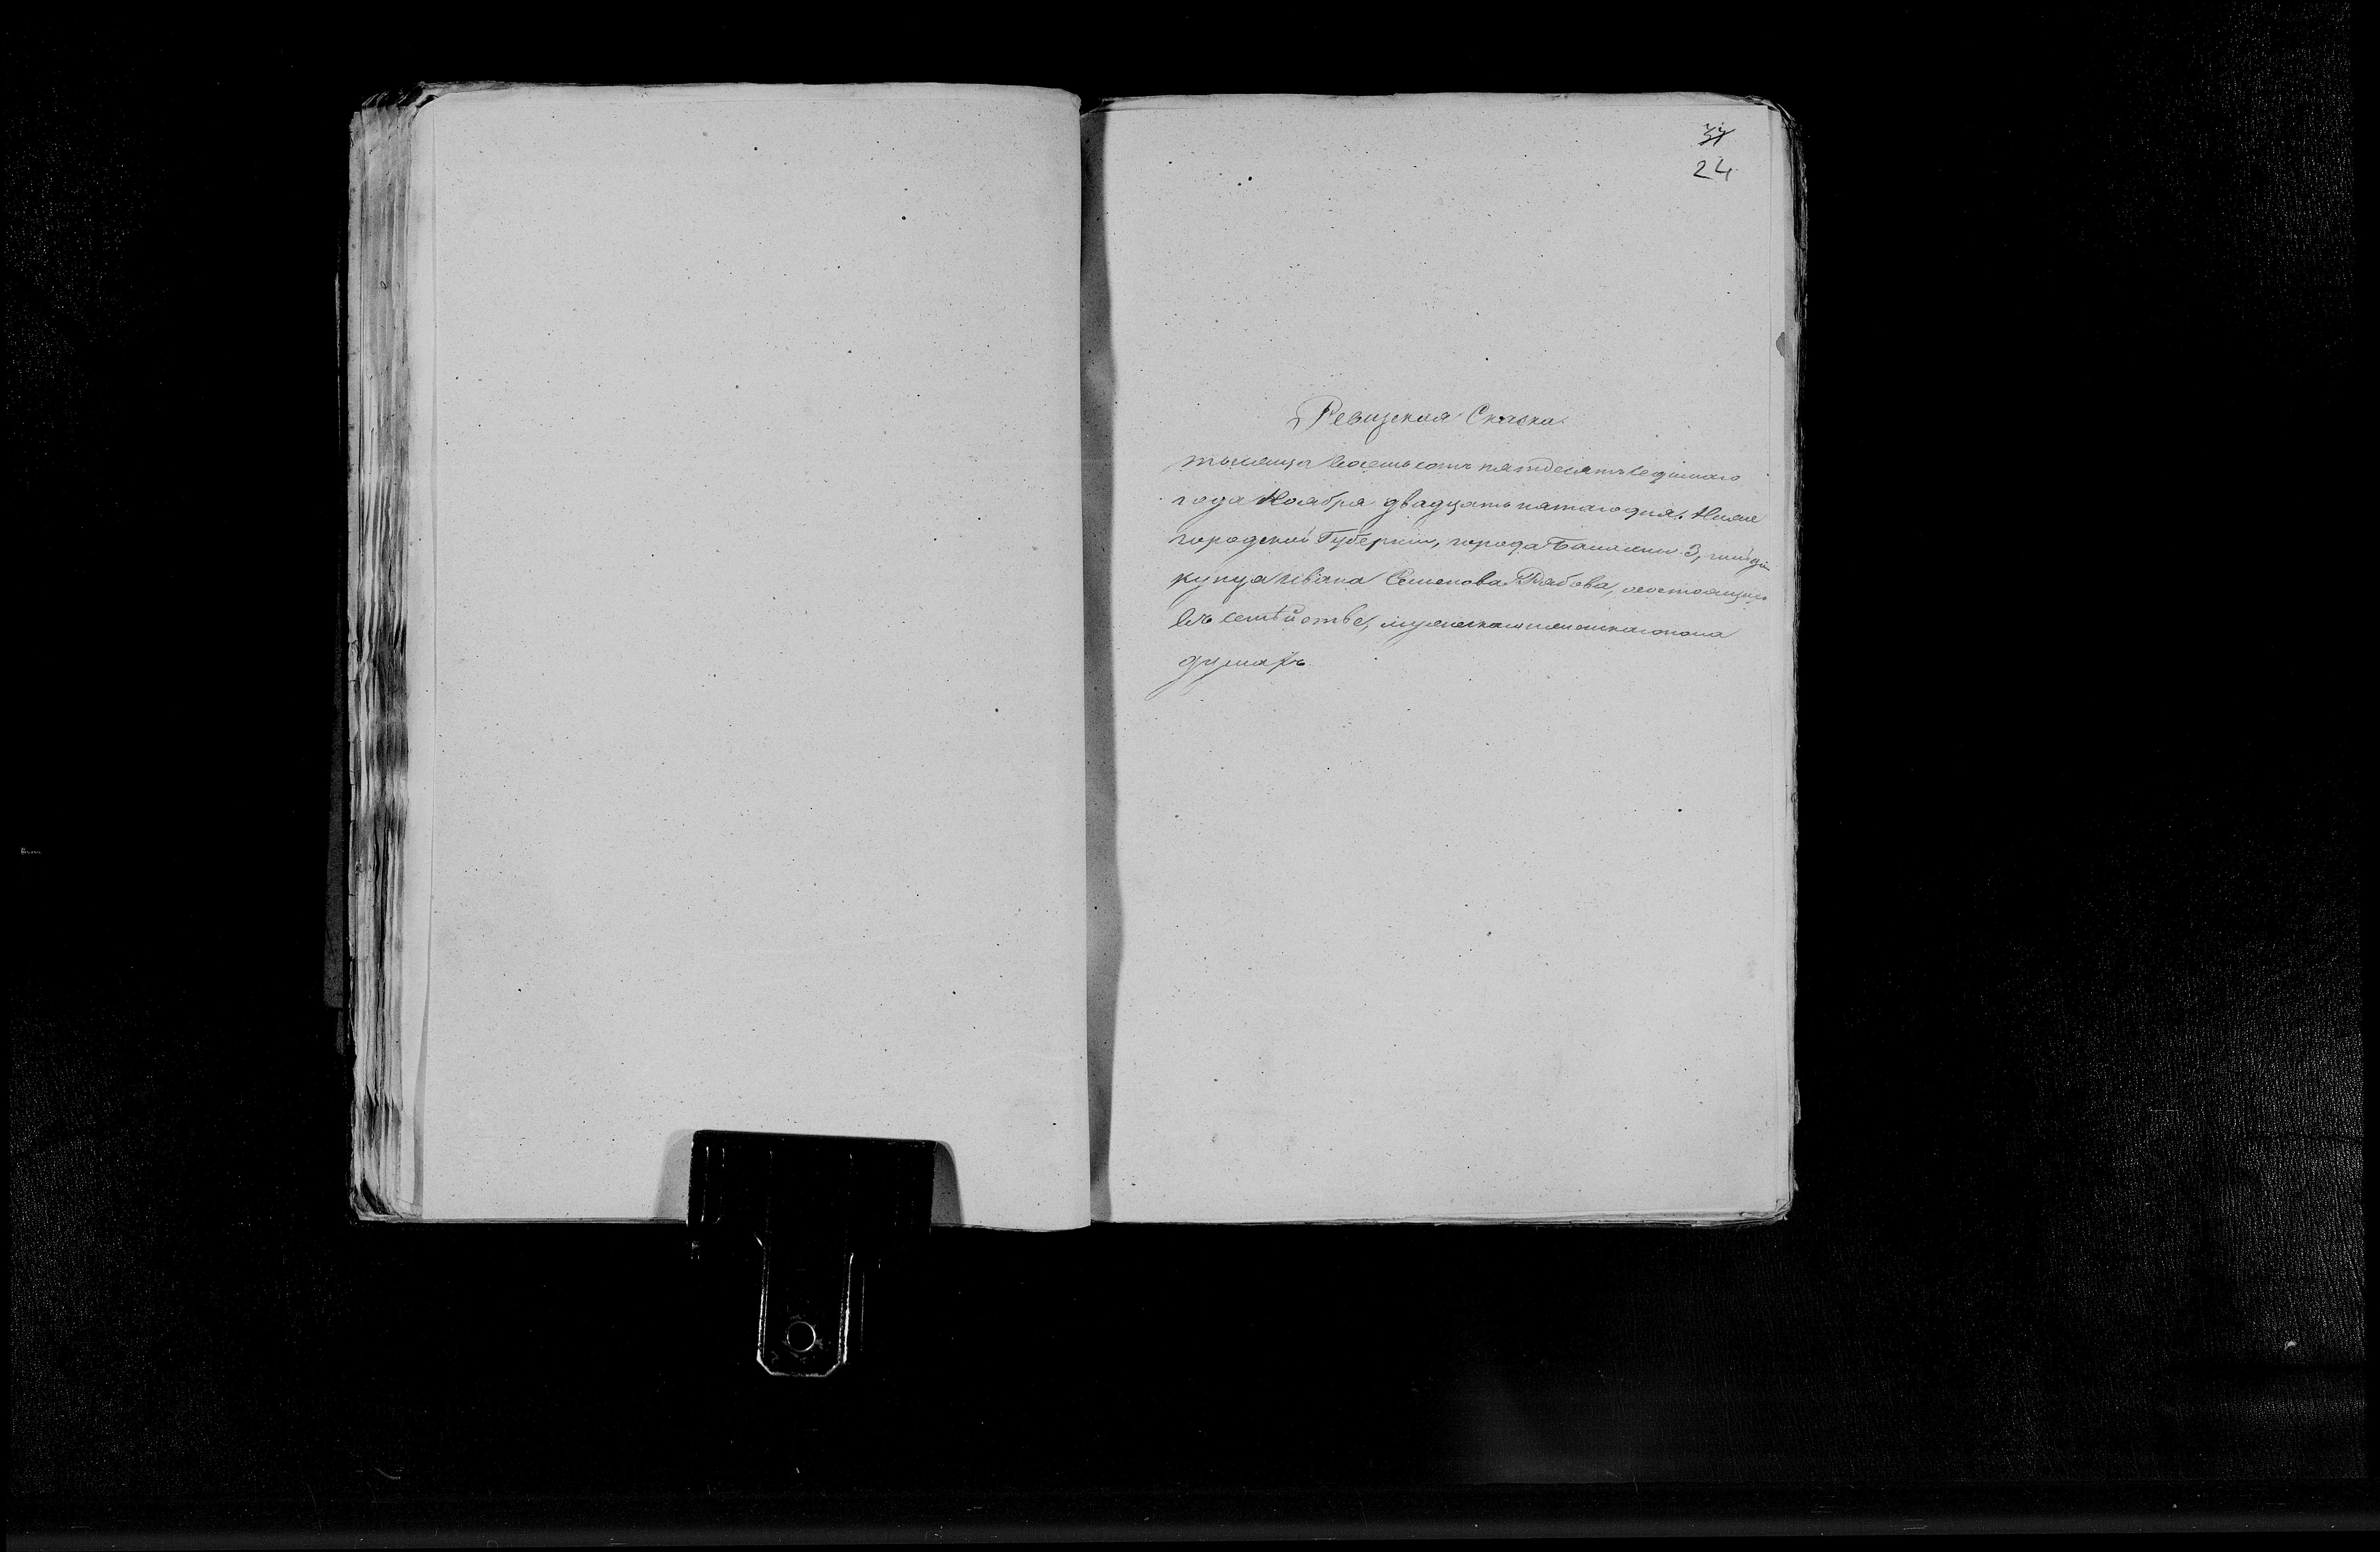 37
24
Ревизская Сказка
тысяща восемьсотъ пятдесятъ седьмаго
года Ноября двадцать пятаго дня. Ниже
городской Губерніи, города Балахны 3, гильдіи
купца Ивана Семенова Рябова, о состоящихъ
въ семѣйстве, мужескаго и женскаго пола
душахъ